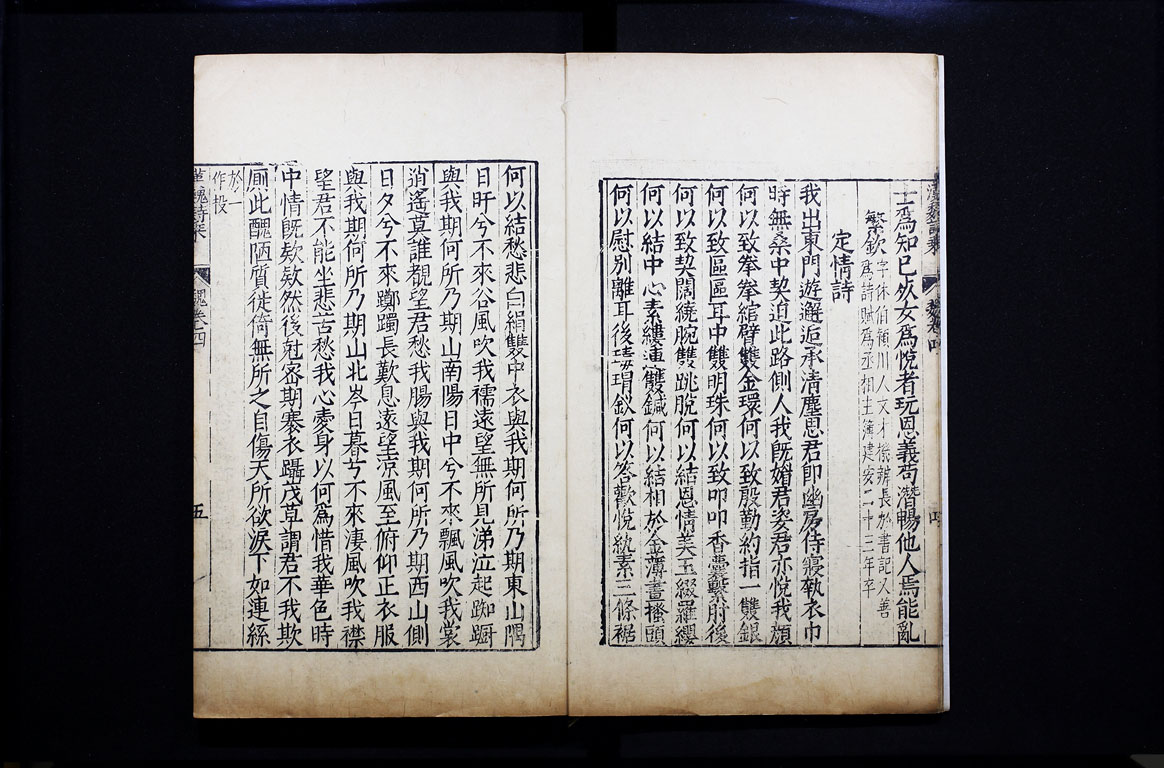 漢魏詩乘
魏卷四
四
士爲知已死女爲悅者玩恩義苟潛暢他人焉能亂
繁欽字休伯潁川人文才機辨長於書記又善
爲詩賦爲丞相主簿建安二十三年卒
定情詩
我出東門遊邂逅承清塵思君即幽房侍寢執衣巾
時無桑中契迫此路側人我既媚君姿君亦悅我顏
何以致拳拳綰臂雙金環何以致殷勤約指一雙銀
何以致區區耳中雙明珠何以致叩叩香囊繫肘後
何以致契闊繞腕雙跳脫何以結恩情美玉綴羅纓
何以結中心素縷連雙鍼何以結相於金薄畫搔頭
何以慰別離耳後瑇瑁釵何以答歡悅紈素三條裾
何以結愁悲白絹雙中衣與我期何所乃期東山隅
日旰兮不來谷風吹我襦遠望無所見涕泣起踟躕
與我期何所乃期山南陽日中兮不來飄風吹我裳
逍遙莫誰覩望君愁我腸與我期何所乃期西山側
日夕兮不來躑躅長歎息遠望涼風至俯仰正衣服
與我期何所乃期山北岑日暮兮不來淒風吹我襟
望君不能坐悲苦愁我心愛身以何爲惜我華色時
中情既欵欵然後尅密期褰衣躡茂草謂君不我欺
廁此醜陋質徙倚無所之自傷失所欲淚下如連絲
於一
作投
漢魏詩乘
魏卷四
五